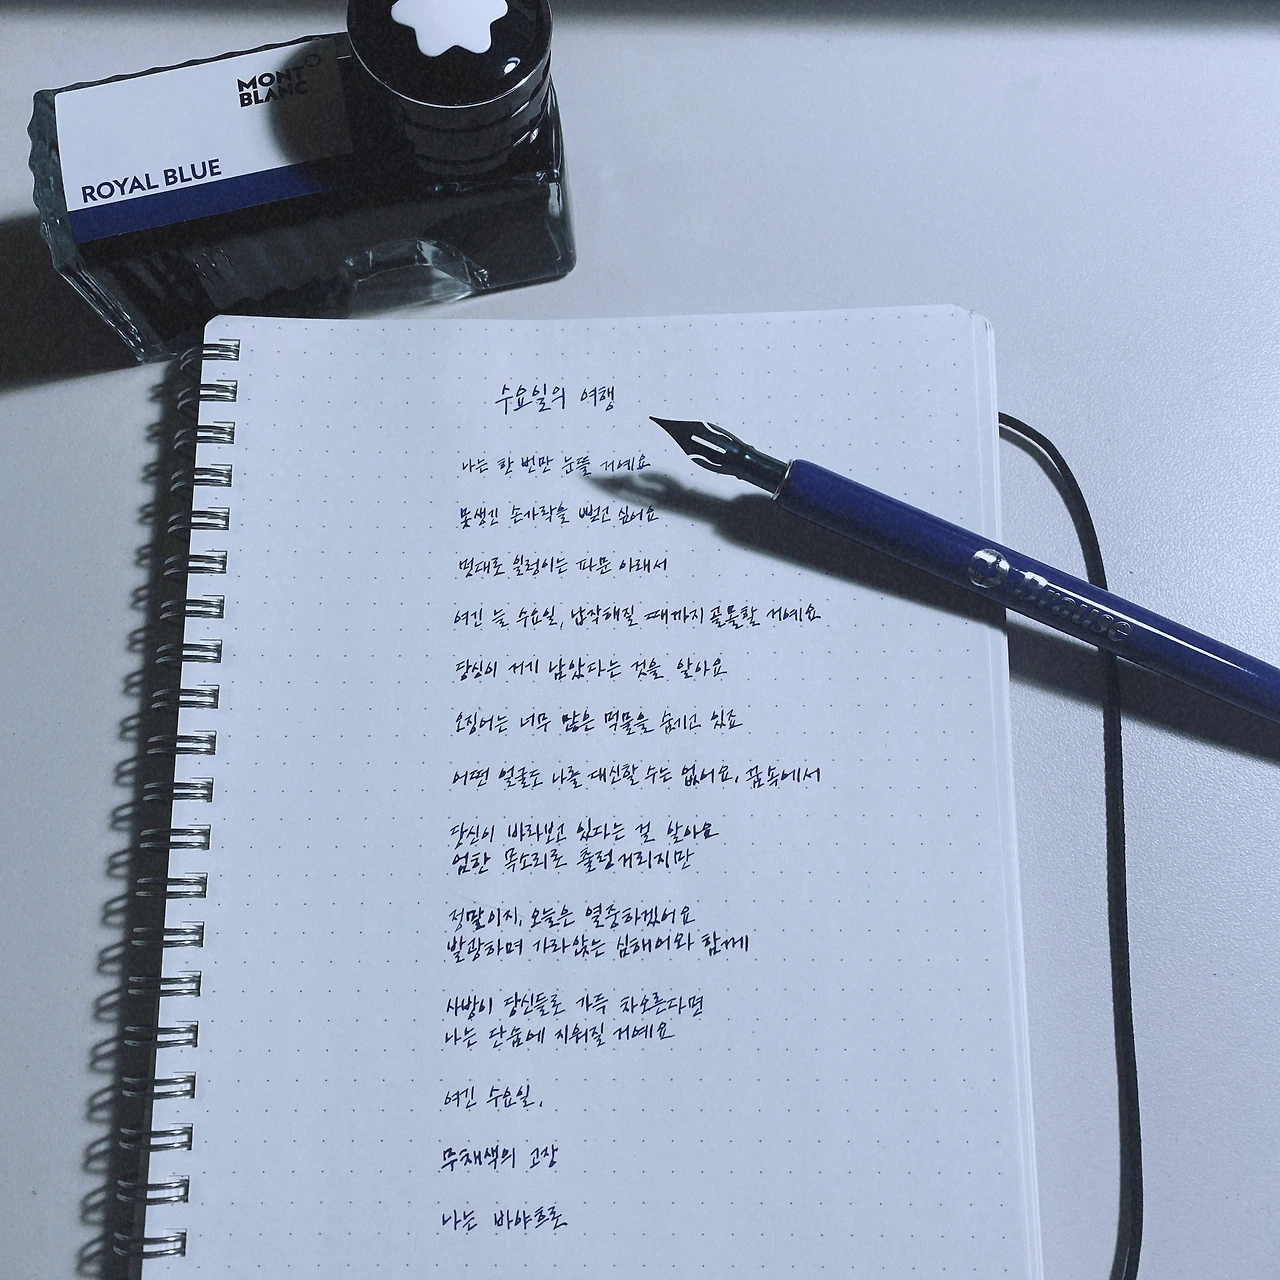 MONT
BLANC
ROYAL BLUE
수요일의 여행
나는 한 번만 눈뜰 거예요
못생긴 손가락을 뻗고 싶어요
멋대로 일렁이는 파문 아래서
여긴 늘 수요일, 납작해질 때까지 골몰할 거예요
당신이 저기 남았다는 것을 알아요
오징어는 너무 많은 먹물을 숨기고 있죠
어떤 얼굴도 나를 대신할 수는 없어요, 꿈속에서
당신이 바라보고 있다는 걸 알아요
엄한 목소리로 출렁거리지만
정말이지, 오늘은 열중하겠어요
발광하며 가라앉는 심해어와 함께
사방이 당신들로 가득 차오른다면
나는 단숨에 지워질 거예요
여긴 수요일,
무채색의 고장
나는 바야흐로
Brause